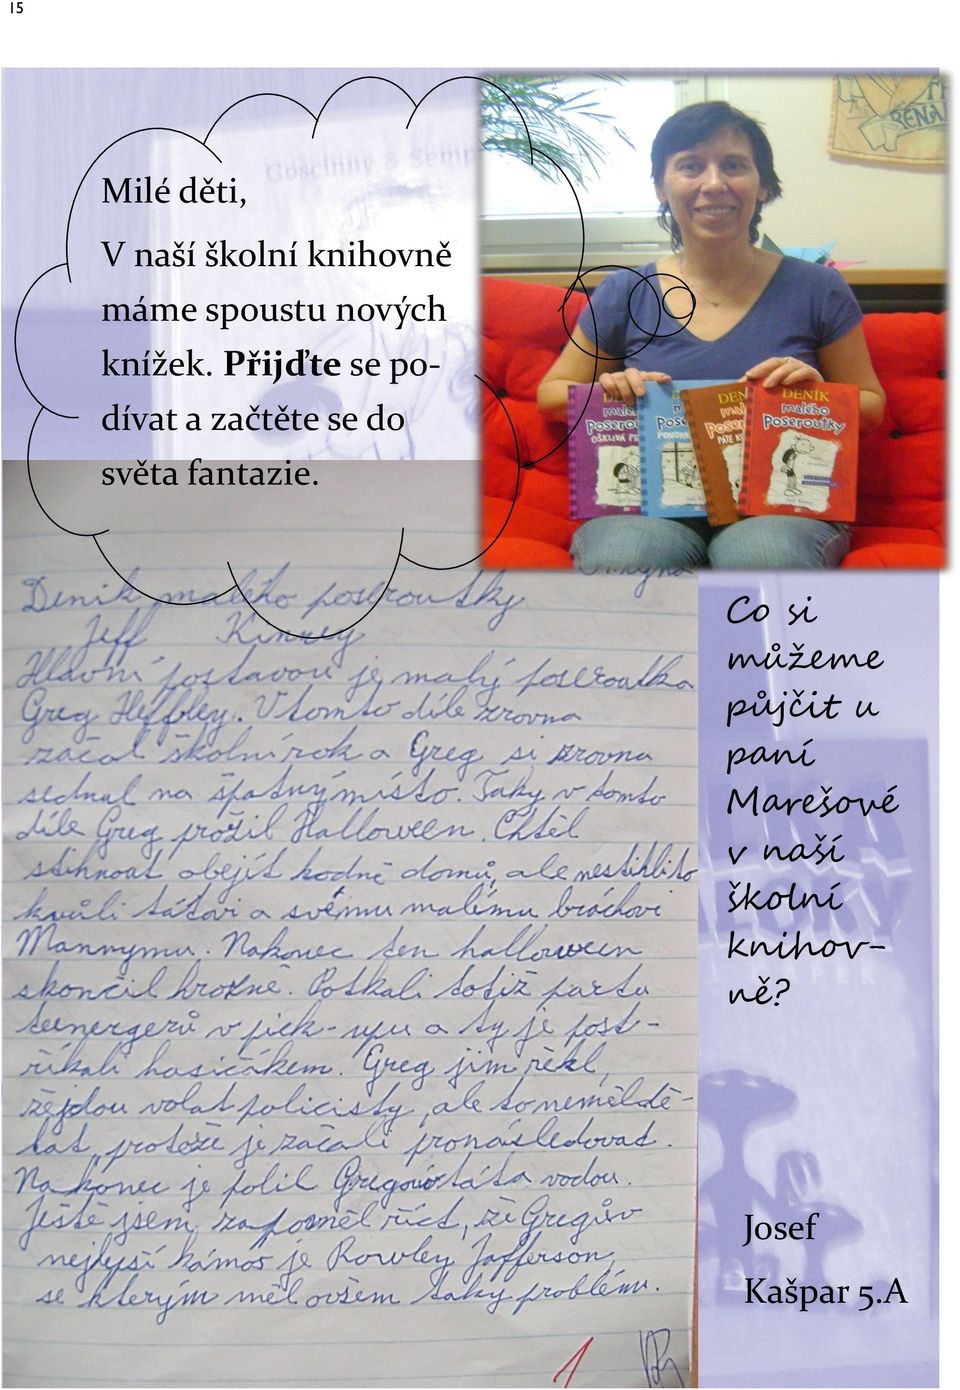 15
Milé děti,
V naší školní knihovně
máme spoustu nových
knížek. Přijďte se po-
dívat a začtěte se do
světa fantazie.
Goscinny & Sempé
DENÍK
malého
Poseroutky
OŠKLIVÁ
DENÍK
malého
Poseroutky
PÁTÉ
DENÍK
malého
Poseroutky
Deník malého poseroutky
Jeff Kinney
Hlavní postavou je malý poseroutka
Greg Heffley. V tomto díle zrovna
začal školní rok a Greg si zrovna
sednul na špatný místo. Taky v tomto
díle Greg prožil Halloween. Chtěl
stihnout obejít hodně domů, ale nestihli to
kvůli tátovi a svému malímu bráchovi
Mannymu. Nakonec ten halloween
skončil hrozně. Potkali totiž partu
teenergerů v pick-upu a ty je post-
říkali hasičákem. Greg jim řekl,
že jdou volat policisty, ale to neměl dě-
lat, protože je začali pronásledovat.
Nakonec je polil Gregův táta vodou.
Ještě jsem zapomněl říct, že Gregův
nejlepší kámoš je Rowley Jafferson,
se kterým měl ovšem taky problém.
1
Co si
můžeme
půjčit u
paní
Marešové
v naší
školní
knihov-
ně?
Josef
Kašpar 5.A